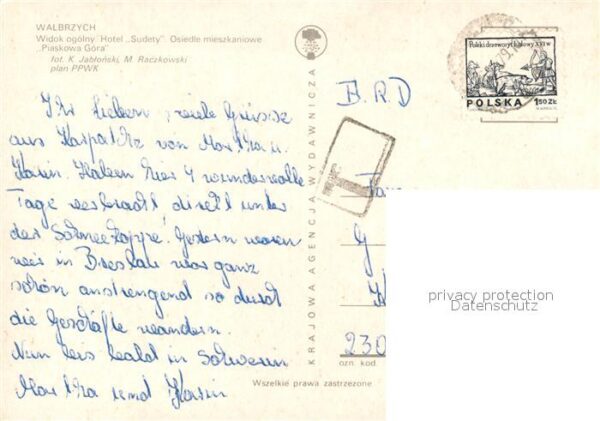 WAŁBRZYCH
Widok ogólny. Hotel „Sudety”. Osiedle mieszkaniowe
„Piaskowa Góra”
fot. K. Jabłoński, M. Raczkowski
plan PPWK
Ihr lieben viele Grüsse
aus Karpacz von Martha u.
Karin. Haben hier 4 wundervolle
Tage verbracht, direkt unter
der Schneekoppe. Gestern waren
wir in Breslau war ganz
schön anstrengend so durch
die Geschäfte wandern.
Nun bis bald in Schwerin
Martha und Karin
KRAJOWA AGENCJA WYDAWNICZA
Wszelkie prawa zastrzeżone
B.R.D
Polski drzeworyt ludowy XVI w.
POLSKA 1,50 ZŁ
230
ozn. kod.
privacy protection
Datenschutz